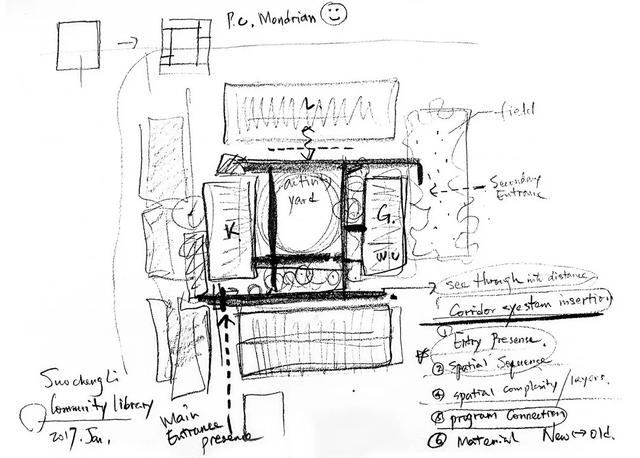 P.C. Mondrian
L
field
activity
yard
Secondary
Entrance
K
G.
W U
see through with distance
Coridor syestem insertion
① Entry Presence.
② Spatial Sequence
④ spatial complexity / layers.
⑤ program Connection
⑥ Material New ↔ Old.
SuochengLi
Community library
2017. Jan.
Main
Entrance
presence